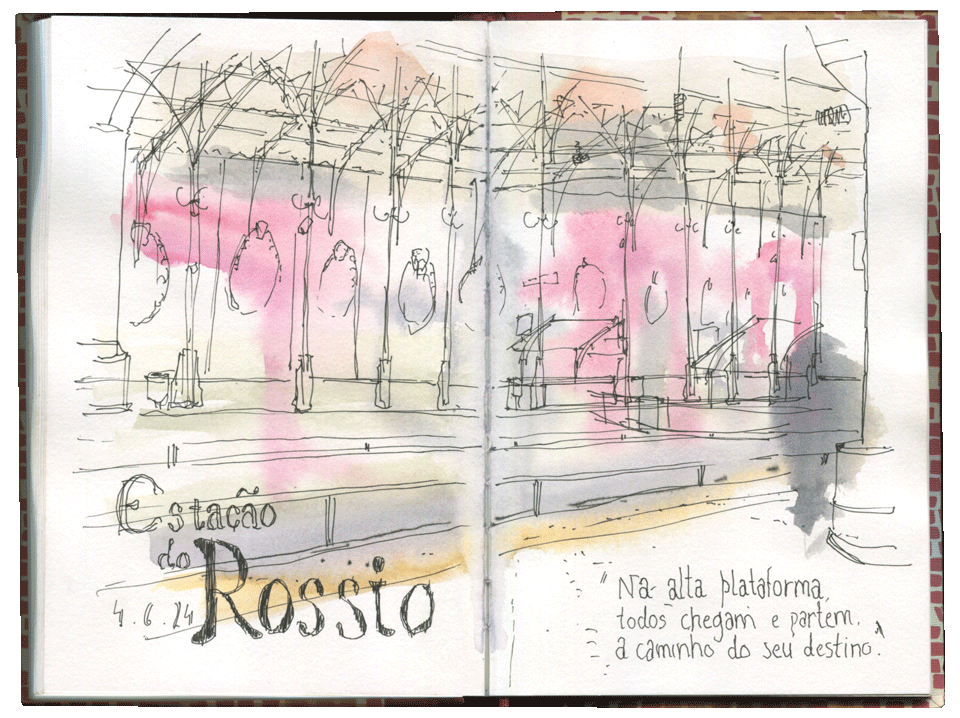 Estação
do
Rossio
4.6.24
"Na alta plataforma,
todos chegam e partem,
a caminho do seu destino."